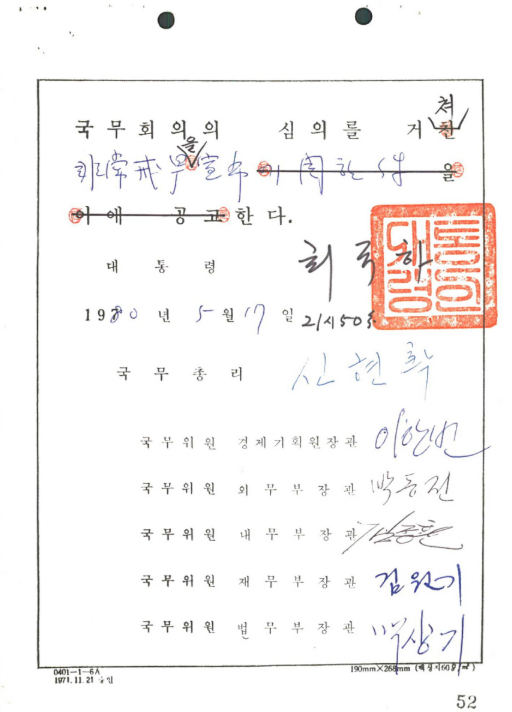 국무회의의 심의를 거쳐 친
非常戒嚴을宣布 에 관한 건 을
이에 공고한다.
대통령 최규하
대통령의인
1980년 5월 17일 21시50분
국무총리 신현확
국무위원 경제기획원장관 이한빈
국무위원 외무부장관 박동진
국무위원 내무부장관 김종환
국무위원 재무부장관 김원기
국무위원 법무부장관 백상기
0401-1-6A
1971.11.21 승인
190mm×268mm (백상지60g/㎡)
52